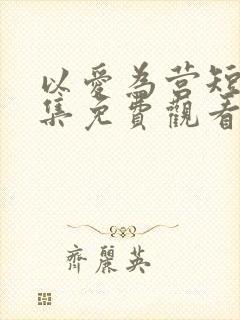 以愛為营短
集免費觀看
齊麗英